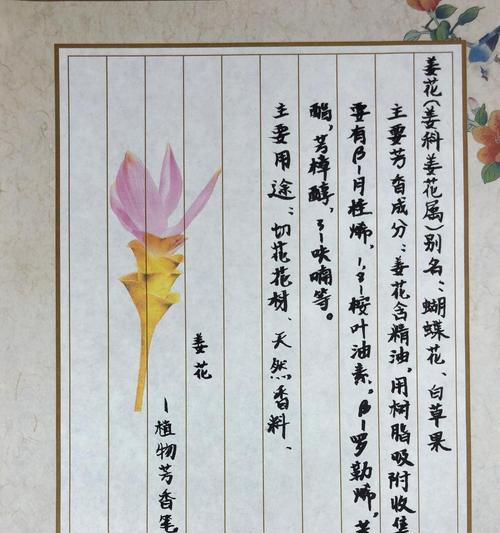 姜花(姜科姜花属)别名:蝴蝶花、白草果
主要芳香成分:姜花含精油,用树脂吸附收
要有β-月桂烯,1,8-桉叶油素。β-罗勒烯,
酯,芳樟醇,3-呋喃等。
主要用途:切花花材、天然香料、
姜花
-植物芳香笔